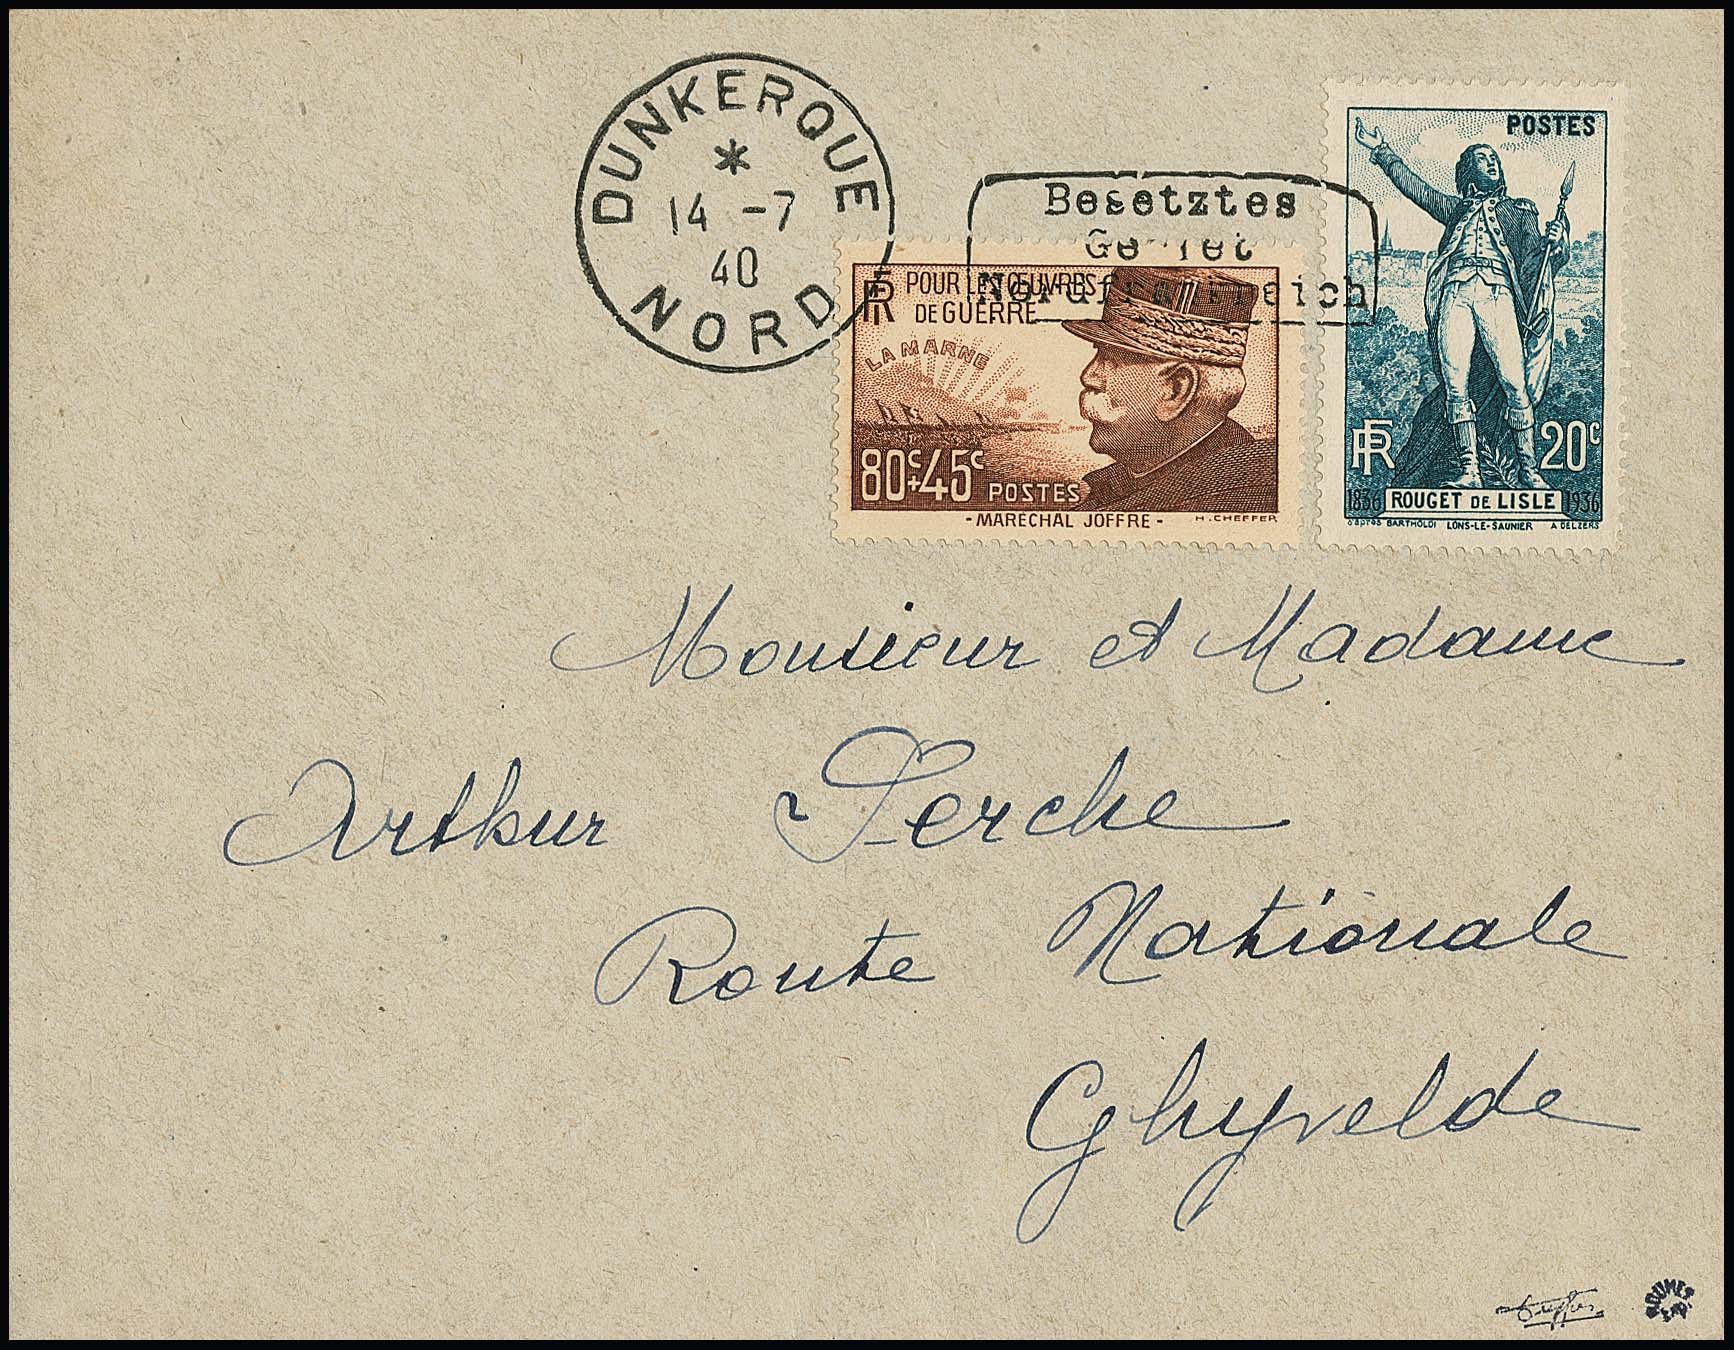 DUNKERQUE
*
14 -7
40
NORD
Besetztes
Gebiet
Nordfrankreich
RF
POUR LES ŒUVRES
DE GUERRE
LA MARNE
80c+45c POSTES
- MARÉCHAL JOFFRE -
H. CHEFFER
POSTES
RF 20c
1836 ROUGET DE LISLE 1936
d'après BARTHOLDI LONS-LE-SAUNIER A DELZERS
Monsieur et Madame
Arthur Lerche
Route Nationale
Ghyvelde
ROUMET